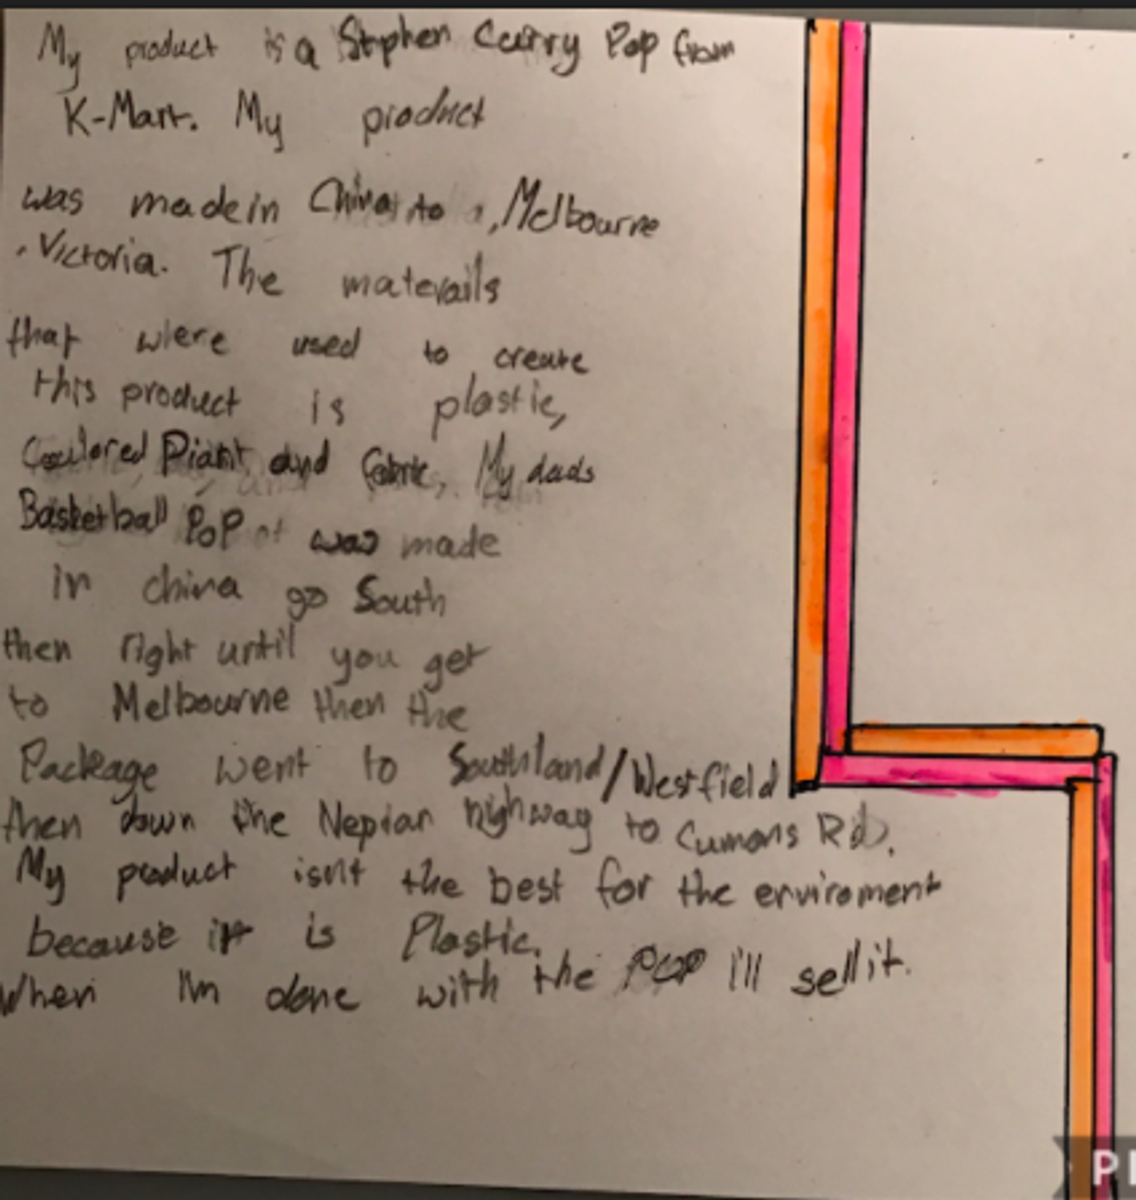 My product is a Stphen Curry Pop from
K-Mart. My product
was made in China to , Melbourne
, Victoria. The materails
that were used to create
this product is plastic,
Coulored Piant and fabric, My dads
Basketball Pop was made
in china go South
then right until you get
to Melbourne then the
Package went to Southland/Westfield
then down the Nepian highway to Cumons Rd.
My product isnt the best for the enviroment
because it is Plastic.
When I'm done with the POP I'll sell it.